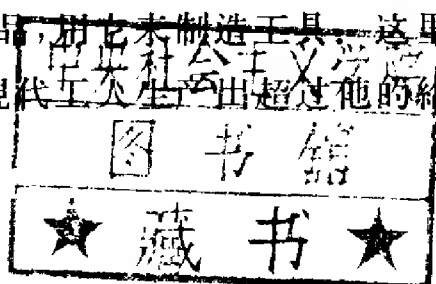 品，用它来制造工具。这里
現代工人生产出超过他的給
中央社会主义学院
图书館
★藏书★